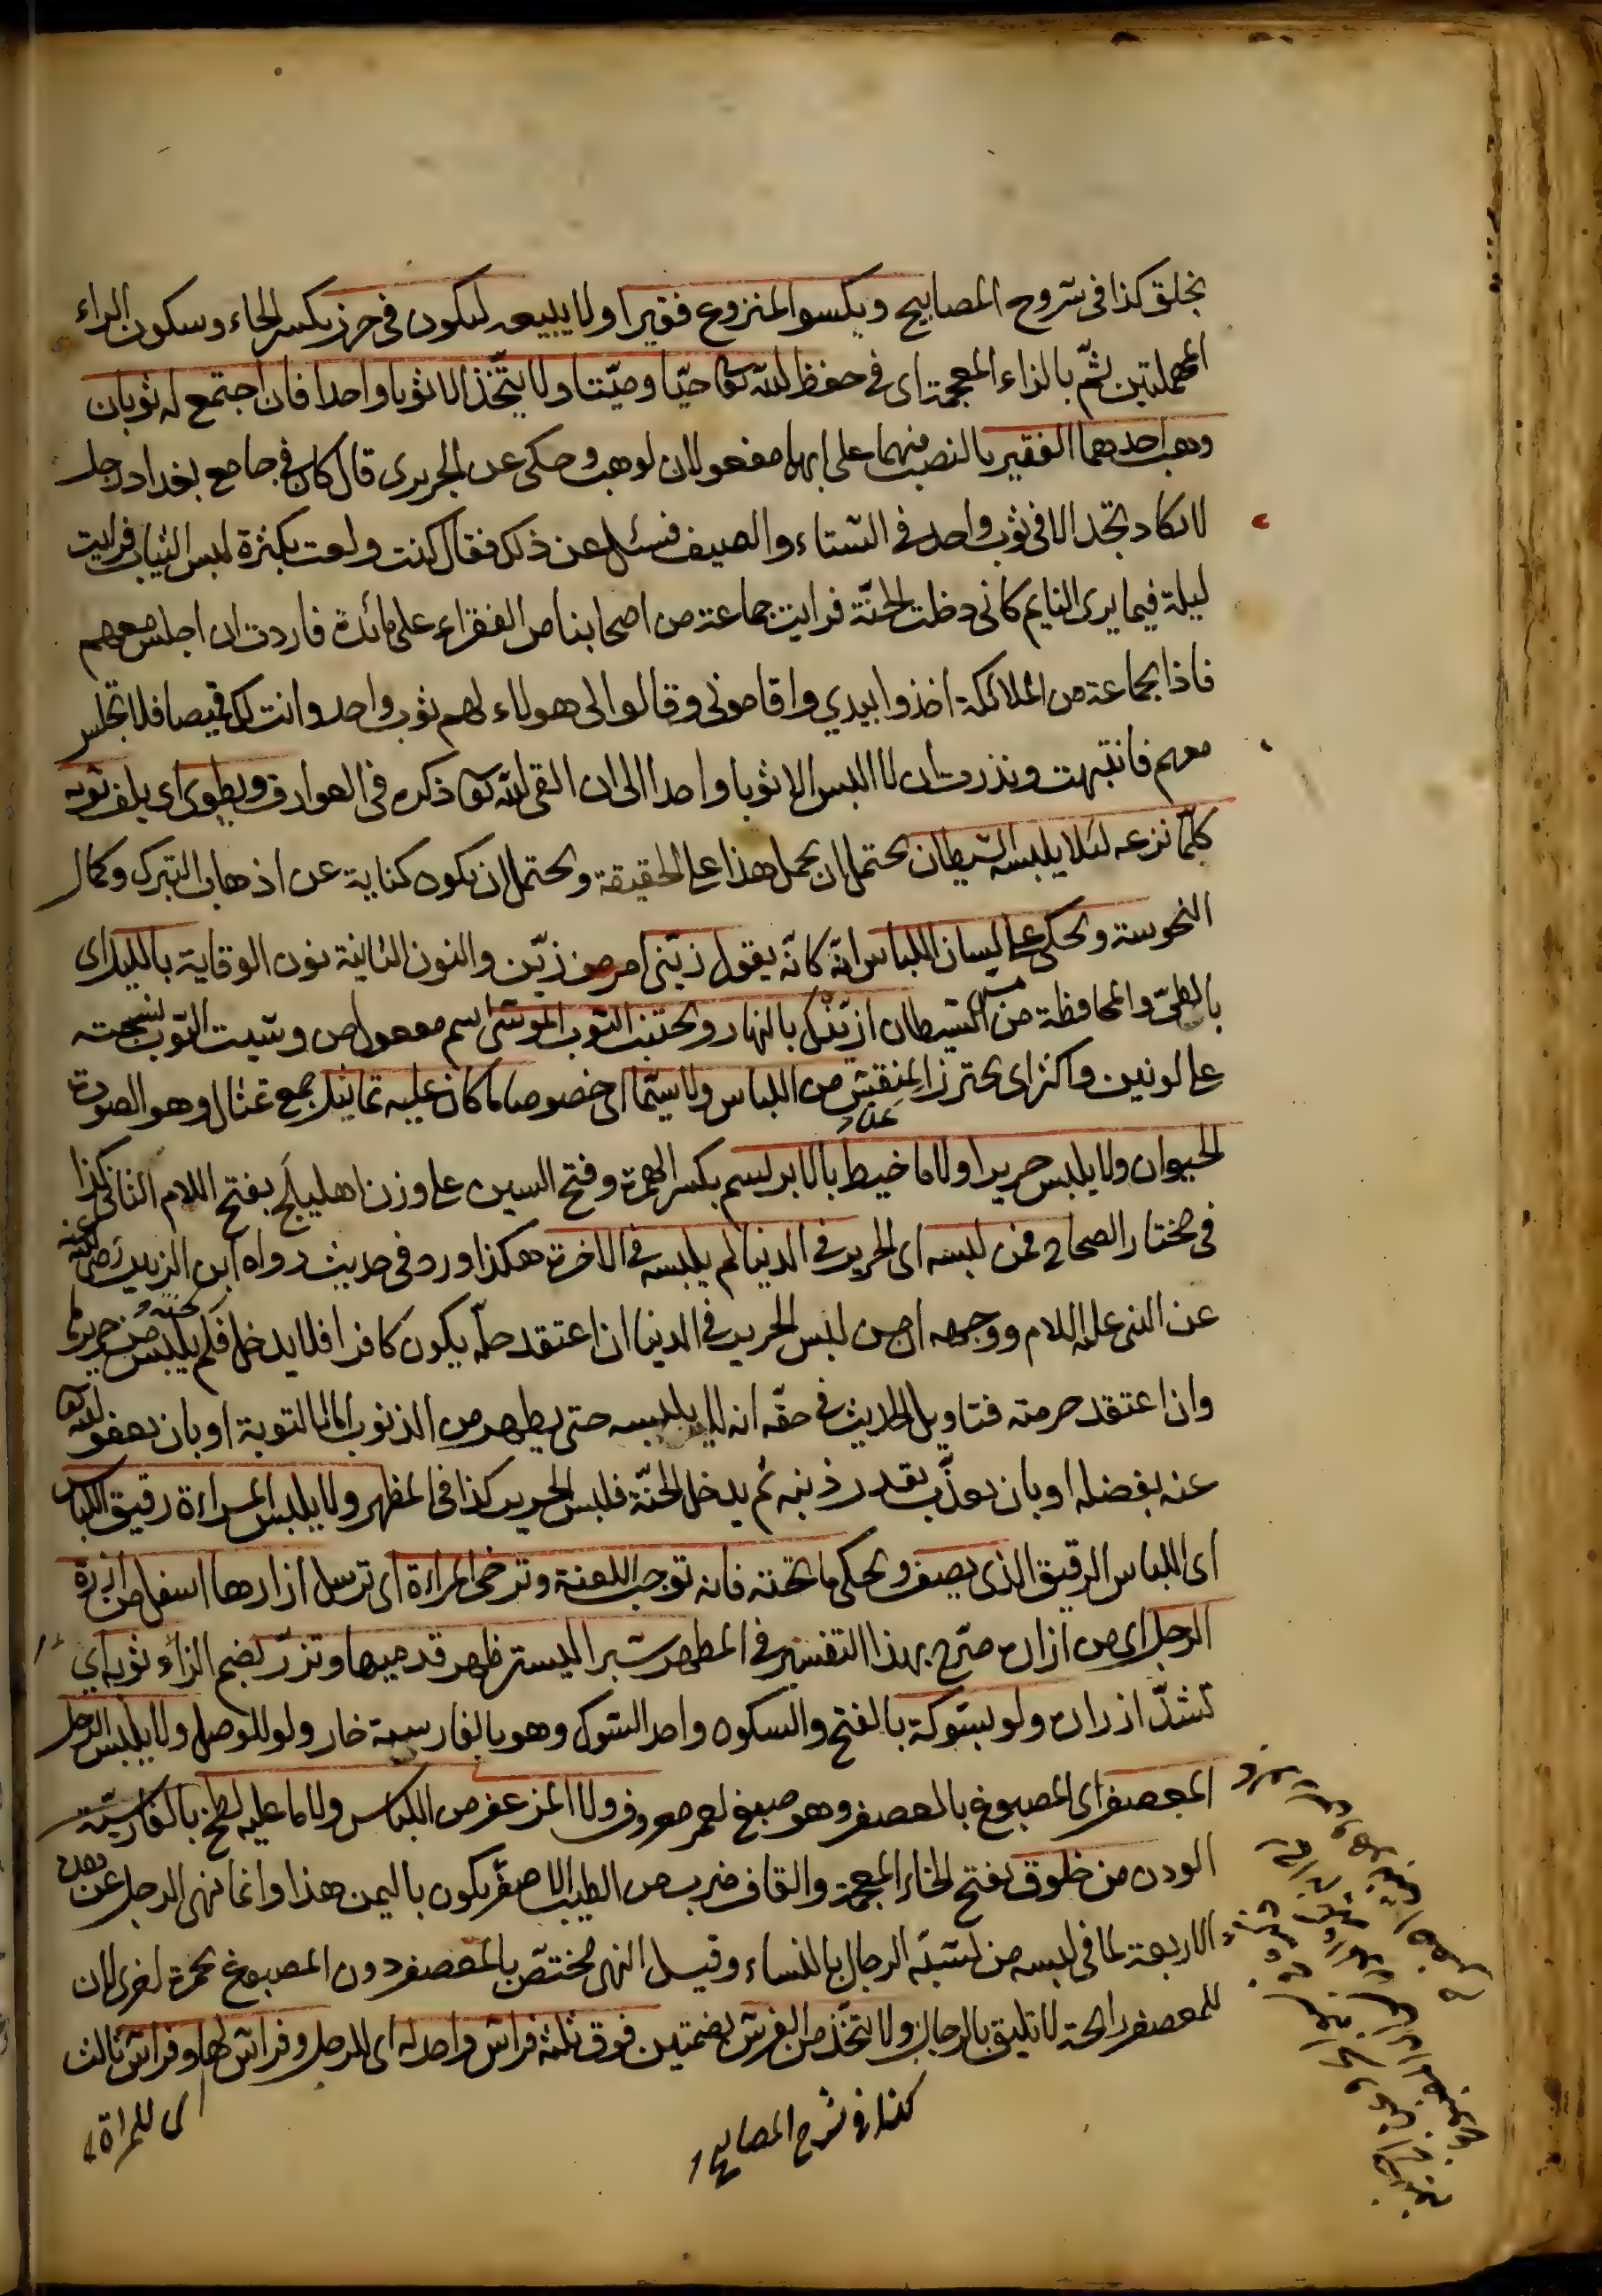 يخلق كذا فى شروح المصابيح ويكسو المنزوع فقيرا ولا يبيعه ليكون فى حرز بكسر الحاء وسكون الراء
المهملتين ثم بالزاء المعجمة اى فى حفظ الله تعا حيّا وميّتا ولا يتّخذ الا ثوبا واحدا فان اجتمع له ثوبان
وهب احدهما الفقير بالنصب منهما على انهما مفعولان لوهب وحكى عن الجريرى قال كان فى جامع بغداد رجل
لا تكاد تجد الا فى ثوب واحد فى الشتاء والصيف فسئل عن ذلك فقال كنت ولعت بكثرة لبس الثياب فرايت
ليلة فيما يرى النايم كانى دخلت الجنّة فرايت جماعة من اصحابنا من الفقراء على مائدة فاردت ان اجلس معهم
فاذا بجماعة من الملائكة اخذوا بيدي واقامونى وقالوا لى هولاء لهم ثوب واحد وانت لك قميصا فلا تجلس
معهم فانتبهت ونذرت ان لا البس الا ثوبا واحدا الى ان القى الله تعا ذكره فى العوارف ويطوى اى يلف ثوبه
كلّما نزعه لئلا يلبسه الشيطان يحتمل ان يحمل هذا على الحقيقة ويحتمل ان يكون كناية عن اذهاب التبرك وكمال
النحوسة ويحكى على لسان اللباس انّه كانّه يقول زيّنى امر من زيّن والنون الثانية نون الوقاية بالليل اى
بالطىّ والمحافظة من مس الشيطان ازيّنك بالنهار ويجتنب الثوب الموشى اسم مفعول من وشيت الثوب نسجته
على لونين واكثر اى يحترز المنقش من اللباس ولا سيّما اى خصوصا ما كان عليه تماثيل جمع تمثال وهو الصورة
الحيوان ولا يلبس حريرا ولا ما خيط بالابريسم بكسر الهمزة وفتح السين على وزن اهليلَج بفتح اللام الثانى كذا
فى مختار الصحاح فمن لبسه اى الحرير فى الدنيا لم يلبسه فى الاخرة هكذا ورد فى حديث رواه ابن الزبير رضى الله عنه
عن النبى عليه السلام ووجهه ان من لبس الحرير فى الدنيا ان اعتقد حلّه يكون كافرا فلا يدخل الجنة فلم يلبس من حريرها
وان اعتقد حرمته فتاويل الحديث فى حقّه انه لا يلبسه حتى يطهر من الذنوب اما بالتوبة او بان يعفو الله تعا
عنه بفضله او بان يعذّب بقدر ذنبه ثم يدخل الجنّة فلبس الحرير كذا فى المظهر ولا يلبس المراءة رقيق اللباس
اى اللباس الرقيق الذى يصف ويحكى ما تحته فانه توجب اللعنة وترخى المراءة اى ترسل ازارها اسفل من ازرة
الرجل اى من ازاره صرّح بهذا التفسير فى المطهر شبرا ليستر ظهر قدميها وتزرّ بضم الزاء ثوبه اي
تشدّ ازراره ولو بشوكة بالفتح والسكون واحد الشوك وهو بالفارسية خار ولو للوصل ولا يلبس الرجل
المعصفر اى المصبوغ بالعصفر وهو صبغ احمر معروف ولا المزعفر من اللباس ولا ما عليه لطخ بالفارسيّة
الودن من خلوق بفتح الخاء المعجمة والقاف ضرب من الطيب الاصفر يكون باليمن هذا وانما نهى الرجل عن هذه
الاربعة لما فى لبسه من تشبّه الرجال بالنساء وقيل النهى مختصّ بالمعصفر دون المصبوغ بحمرة اخرى لان
للمعصفر رائحة لا تليق بالرجال ولا يتّخذ من الفرش بضمتين فوق ثلثة فراش واحد له اى للرجل وفراش لها وفراش ثالث
اى للمراة
كذا فى شرح المصابيح